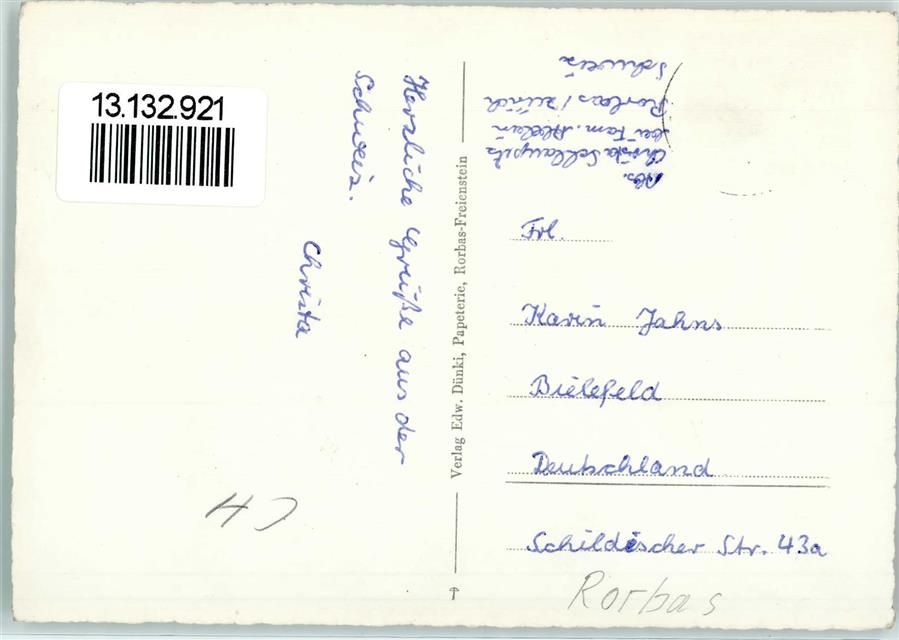 13.132.921
Herzliche Grüße aus der
Schweiz.
Christa
CH
Verlag Edw. Dünki, Papeterie, Rorbas-Freienstein
Abs.
Christa Schlaupitz
bei Fam.
Rorbas / Zürich
Schweiz
Frl.
Karin Jahns
Bielefeld
Deutschland
Schildescher Str. 43a
Rorbas